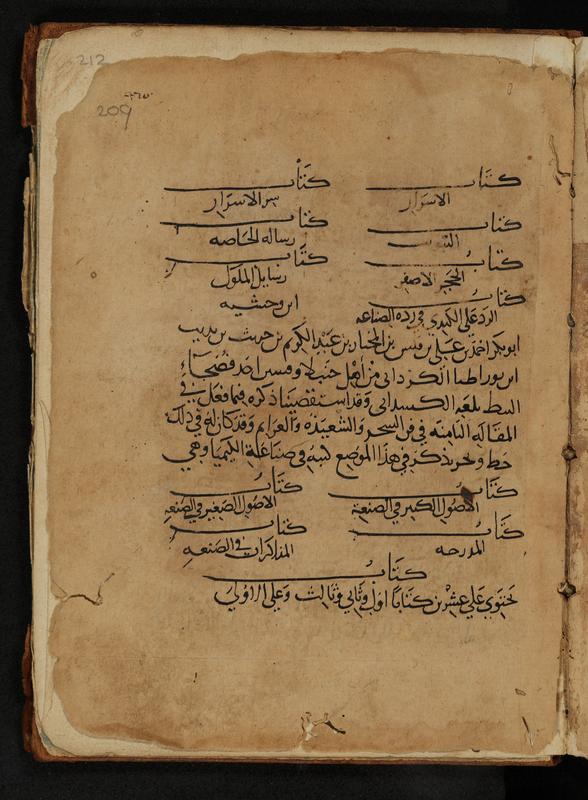 212
209
كتاب كتاب
الاسرار سر الاسرار
كتاب كتاب
رساله الخاصه
كتاب كتاب
الحجر الاصفر رسايل الملوك
كتاب ابن وحشيه
الرد على الكندي في رده الصناعه
ابو بكر احمد بن علي بن قيس بن المختار بن عبد الكريم بن حرث بن
ابن بوراطيا الكزداني من اهل جنبلا وقسين احد فصحاء
النبط بلغه الكسدانى وقد استقصينا ذكره فيما فعل في
المقاله الثامنه في فن السحر والشعبذه والعزايم وقد كان له في ذلك
حظ ونحن نذكر في هذا الموضع كتبه في صناعة الكيميا وهي
كتاب كتاب
الاصول الكبير في الصنعة الاصول الصغير في الصنعه
كتاب كتاب
المدرجه المذاكرات في الصنعه
كتاب
يحتوي على عشرين كتابا اول وثاني وثالث وعلى الاولى